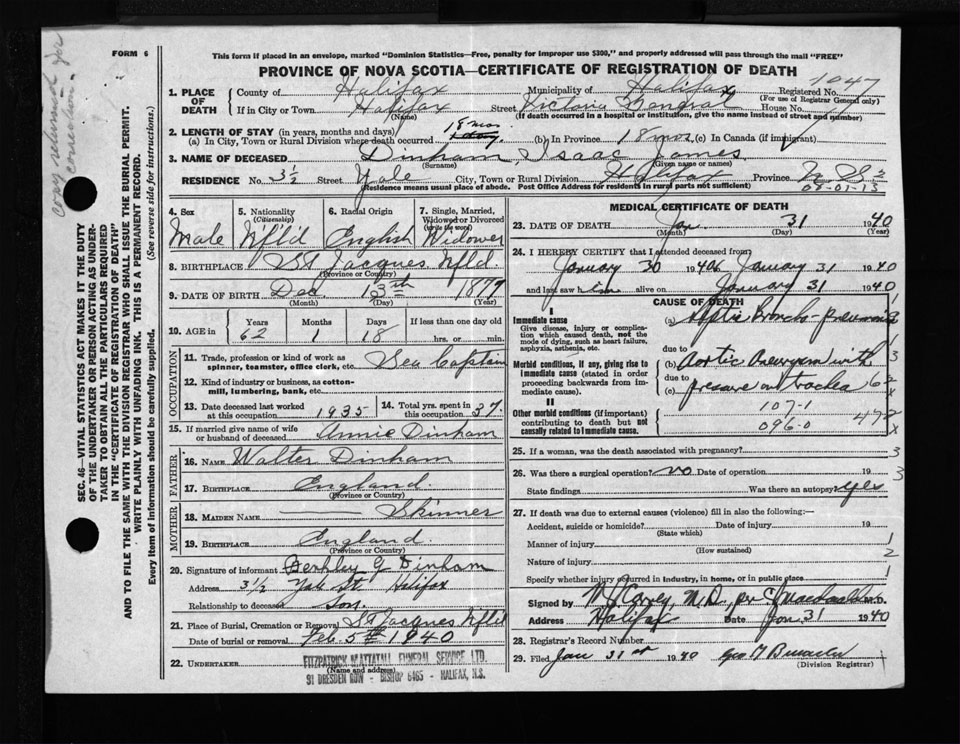 FORM 6
This form if placed in an envelope, marked "Dominion Statistics—Free, penalty for improper use $300," and properly addressed will pass through the mail "FREE"
PROVINCE OF NOVA SCOTIA—CERTIFICATE OF REGISTRATION OF DEATH
1047
1. PLACE OF DEATH
County of Halifax Municipality of Halifax Registered No.
(For use of Registrar General only)
If in City or Town Halifax Street Victoria General House No.
(Name) (If death occurred in a hospital or institution, give the name instead of street and number)
2. LENGTH OF STAY (in years, months and days) 18 mos
(a) In City, Town or Rural Division where death occurred 1 day (b) In Province 18 mos (c) In Canada (if immigrant)
3. NAME OF DECEASED Dinham, Isaac James
(Surname) (Given name or names)
RESIDENCE No. 3½ Street Yale City, Town or Rural Division Halifax Province N.S.
(Residence means usual place of abode. Post Office Address for residents in rural parts not sufficient)
09-01-13
4. Sex Male
5. Nationality (Citizenship) Nfl'd
6. Racial Origin English
7. Single, Married, Widowed or Divorced (write the word) Widower
8. BIRTHPLACE St Jacques Nfld.
(Province or Country)
9. DATE OF BIRTH Dec. 13th 1877
(Month) (Day) (Year)
10. AGE in Years Months Days If less than one day
62 1 18 hrs. or min.
OCCUPATION
11. Trade, profession or kind of work as spinner, teamster, office clerk, etc. Sea Captain
12. Kind of industry or business, as cotton-mill, lumbering, bank, etc.
13. Date deceased last worked at this occupation 1935
14. Total yrs. spent in this occupation 37
15. If married give name of wife or husband of deceased Annie Dinham
FATHER
16. NAME Walter Dinham
17. BIRTHPLACE England
(Province or Country)
MOTHER
18. MAIDEN NAME Skinner
19. BIRTHPLACE England
(Province or Country)
20. Signature of informant Berkley G Dinham
Address 3½ Yale St. Halifax
Relationship to deceased Son.
21. Place of Burial, Cremation or Removal St Jacques Nfl'd
Date of burial or removal Feb. 5th 1940
22. UNDERTAKER FITZPATRICK MATTATALL FUNERAL SERVICE LTD.
(Name and address)
91 DRESDEN ROW - BISHOP 6463 - HALIFAX, N.S.
MEDICAL CERTIFICATE OF DEATH
23. DATE OF DEATH Jan 31 1940
(Month) (Day) (Year)
24. I HEREBY CERTIFY that I attended deceased from
January 30 1940 to January 31 1940
and last saw him alive on January 31 1940
CAUSE OF DEATH
I
Immediate cause
Give disease, injury or complication which caused death, not the mode of dying, such as heart failure, asphyxia, asthenia, etc.
(a) Septic Broncho-pneumonia
due to
Morbid conditions, if any, giving rise to immediate cause (stated in order proceeding backwards from immediate cause).
(b) Aortic Aneurysm with
due to
(c) pressure on trachea
II
Other morbid conditions (if important) contributing to death but not causally related to immediate cause.
107-1
096-0
25. If a woman, was the death associated with pregnancy?
26. Was there a surgical operation? no Date of operation 19
State findings Was there an autopsy? yes
27. If death was due to external causes (violence) fill in also the following:—
Accident, suicide or homicide? Date of injury 19
(State which)
Manner of injury
(How sustained)
Nature of injury
Specify whether injury occurred in industry, in home, or in public place
Signed by M.D., per C. Macdonald M.D.
Address Halifax Date Jan 31 1940
28. Registrar's Record Number
29. Filed Jan 31st 1940 Geo
(Division Registrar)
SEC. 46—VITAL STATISTICS ACT MAKES IT THE DUTY OF THE UNDERTAKER OR PERSON ACTING AS UNDERTAKER TO OBTAIN ALL THE PARTICULARS REQUIRED IN THE "CERTIFICATE OF REGISTRATION OF DEATH" AND TO FILE THE SAME WITH THE DIVISION REGISTRAR WHO SHALL ISSUE THE BURIAL PERMIT.
WRITE PLAINLY WITH UNFADING INK. THIS IS A PERMANENT RECORD.
Every item of information should be carefully supplied. (See reverse side for instructions.)
copy returned for correction.